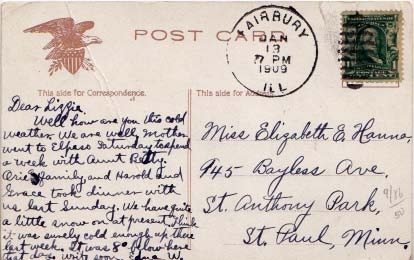 POST CARD
FAIRBURY
JAN
13
7 PM
1909
ILL
This side for Correspondence.
This side for Address
Dear Lizzie
Well how are you this cold
weather. We are well. Mother
went to Elpaso Saturday to spend
a week with Aunt Betty.
family, and Harold and
Grace took dinner with
us last Sunday. We have quite
a little snow on at present. I think
it was surely cold enough up there
last week. It was 8° below here
write soon. W.
Miss Elizabeth E. Hanna,
945 Bayless Ave.
St. Anthony Park,
St. Paul, Minn.